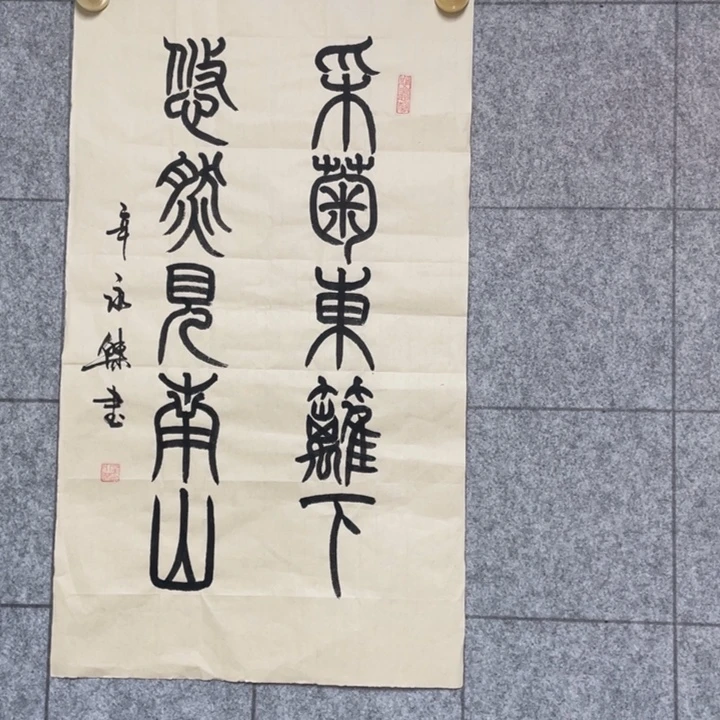 采菊東籬下
悠然見南山
辛永㷊書